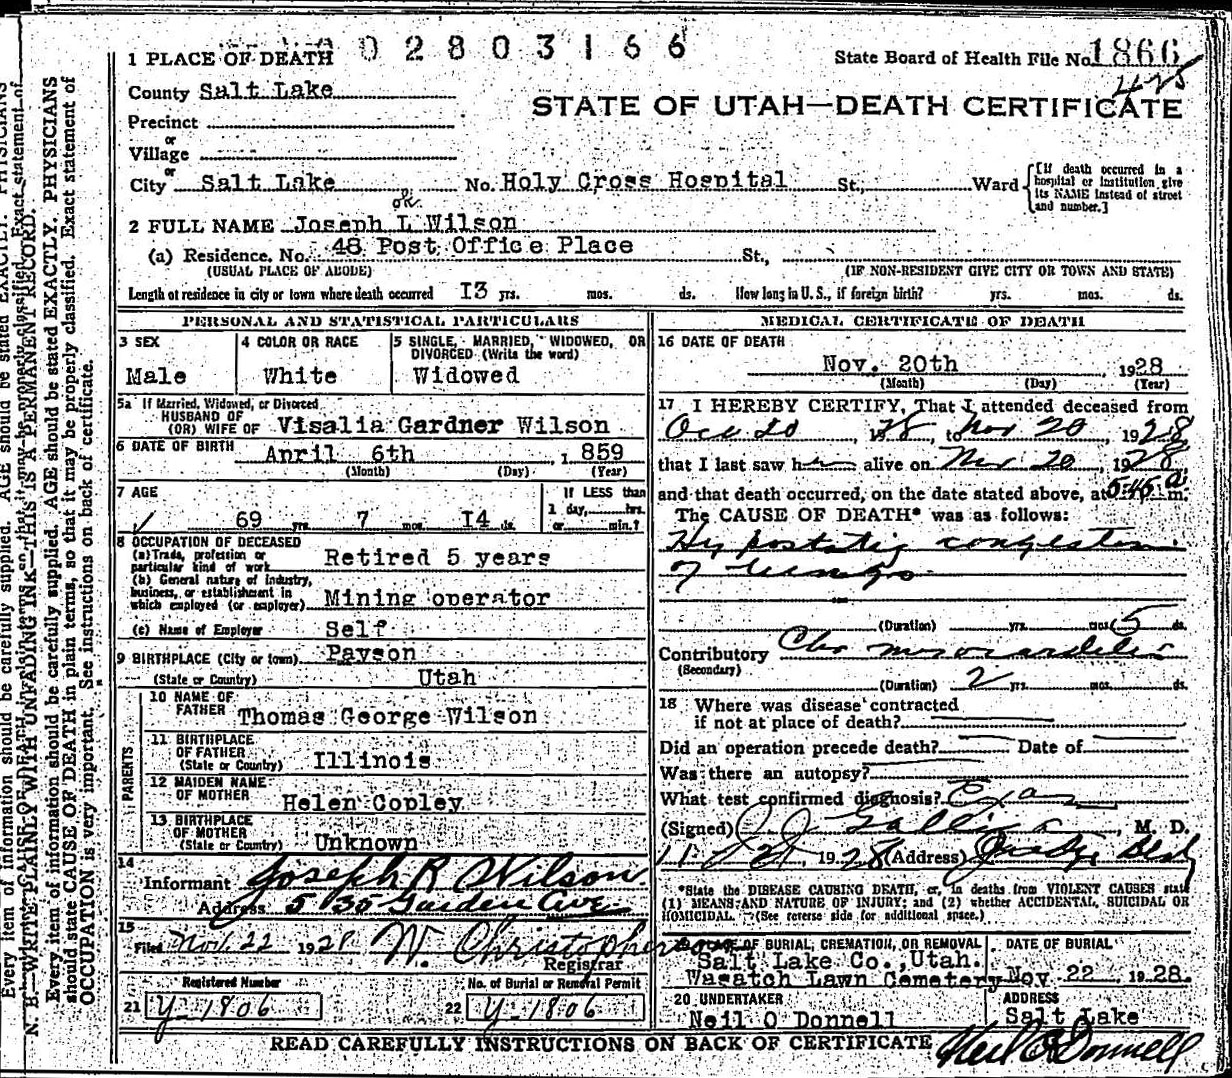 02803166
State Board of Health File No. 1866
425
1 PLACE OF DEATH
County Salt Lake
STATE OF UTAH—DEATH CERTIFICATE
Precinct
or
Village
or
City Salt Lake No. Holy Cross Hospital St., Ward
[If death occurred in a hospital or institution give its NAME instead of street and number.]
ok
2 FULL NAME Joseph L Wilson
(a) Residence. No. 48 Post Office Place St.,
(USUAL PLACE OF ABODE) (IF NON-RESIDENT GIVE CITY OR TOWN AND STATE)
Length of residence in city or town where death occurred 13 yrs. mos. ds. How long in U. S., if foreign birth? yrs. mos. ds.
PERSONAL AND STATISTICAL PARTICULARS
3 SEX
Male
4 COLOR OR RACE
White
5 SINGLE, MARRIED, WIDOWED, OR DIVORCED (Write the word)
Widowed
5a If Married, Widowed, or Divorced
HUSBAND OF
(OR) WIFE OF Visalia Gardner Wilson
6 DATE OF BIRTH April 6th, 1859
(Month) (Day) (Year)
7 AGE
✓ 69 yrs. 7 mos. 14 ds.
If LESS than
1 day, hrs.
or min.?
8 OCCUPATION OF DECEASED
(a) Trade, profession or
particular kind of work Retired 5 years
(b) General nature of Industry,
business, or establishment in
which employed (or employer) Mining operator
(c) Name of Employer Self
9 BIRTHPLACE (City or town) Payson
(State or Country) Utah
PARENTS
10 NAME OF
FATHER Thomas George Wilson
11 BIRTHPLACE
OF FATHER
(State or Country) Illinois
12 MAIDEN NAME
OF MOTHER Helen Copley
13 BIRTHPLACE
OF MOTHER
(State or Country) Unknown
14
Informant Joseph R Wilson
Address 535 Garden Ave
15
Filed Nov. 22 1928 W. Christopherson
Registrar
Registered Number
21 Y-1806
No. of Burial or Removal Permit
22 Y-1806
MEDICAL CERTIFICATE OF DEATH
16 DATE OF DEATH
Nov. 20th 1928
(Month) (Day) (Year)
17 I HEREBY CERTIFY, That I attended deceased from
20, 1928, to Nov 20, 1928
that I last saw h alive on Nov 20, 1928,
and that death occurred, on the date stated above, at 5:45 a m.
The CAUSE OF DEATH* was as follows:
Hypostatic congestion
of lungs
(Duration) yrs. mos. 5 ds.
Contributory Chr myocarditis
(Secondary)
(Duration) 2 yrs. mos. ds.
18 Where was disease contracted
if not at place of death?
Did an operation precede death? Date of
Was there an autopsy?
What test confirmed diagnosis? Exam
(Signed) , M. D.
11-21, 1928 (Address) Judge Bldg
*State the DISEASE CAUSING DEATH, or, in deaths from VIOLENT CAUSES state
(1) MEANS AND NATURE OF INJURY; and (2) whether ACCIDENTAL, SUICIDAL OR
HOMICIDAL. (See reverse side for additional space.)
OF BURIAL, CREMATION, OR REMOVAL
Salt Lake Co., Utah.
Wasatch Lawn Cemetery
DATE OF BURIAL
Nov 22 1928.
20 UNDERTAKER
Neil O Donnell
ADDRESS
Salt Lake
Neil O'Donnell
READ CAREFULLY INSTRUCTIONS ON BACK OF CERTIFICATE
N. B.—WRITE PLAINLY WITH UNFADING INK—THIS IS A PERMANENT RECORD.
Every item of information should be carefully supplied. AGE should be stated EXACTLY. PHYSICIANS
should state CAUSE OF DEATH in plain terms, so that it may be properly classified. Exact statement of
OCCUPATION is very important. See instructions on back of certificate.